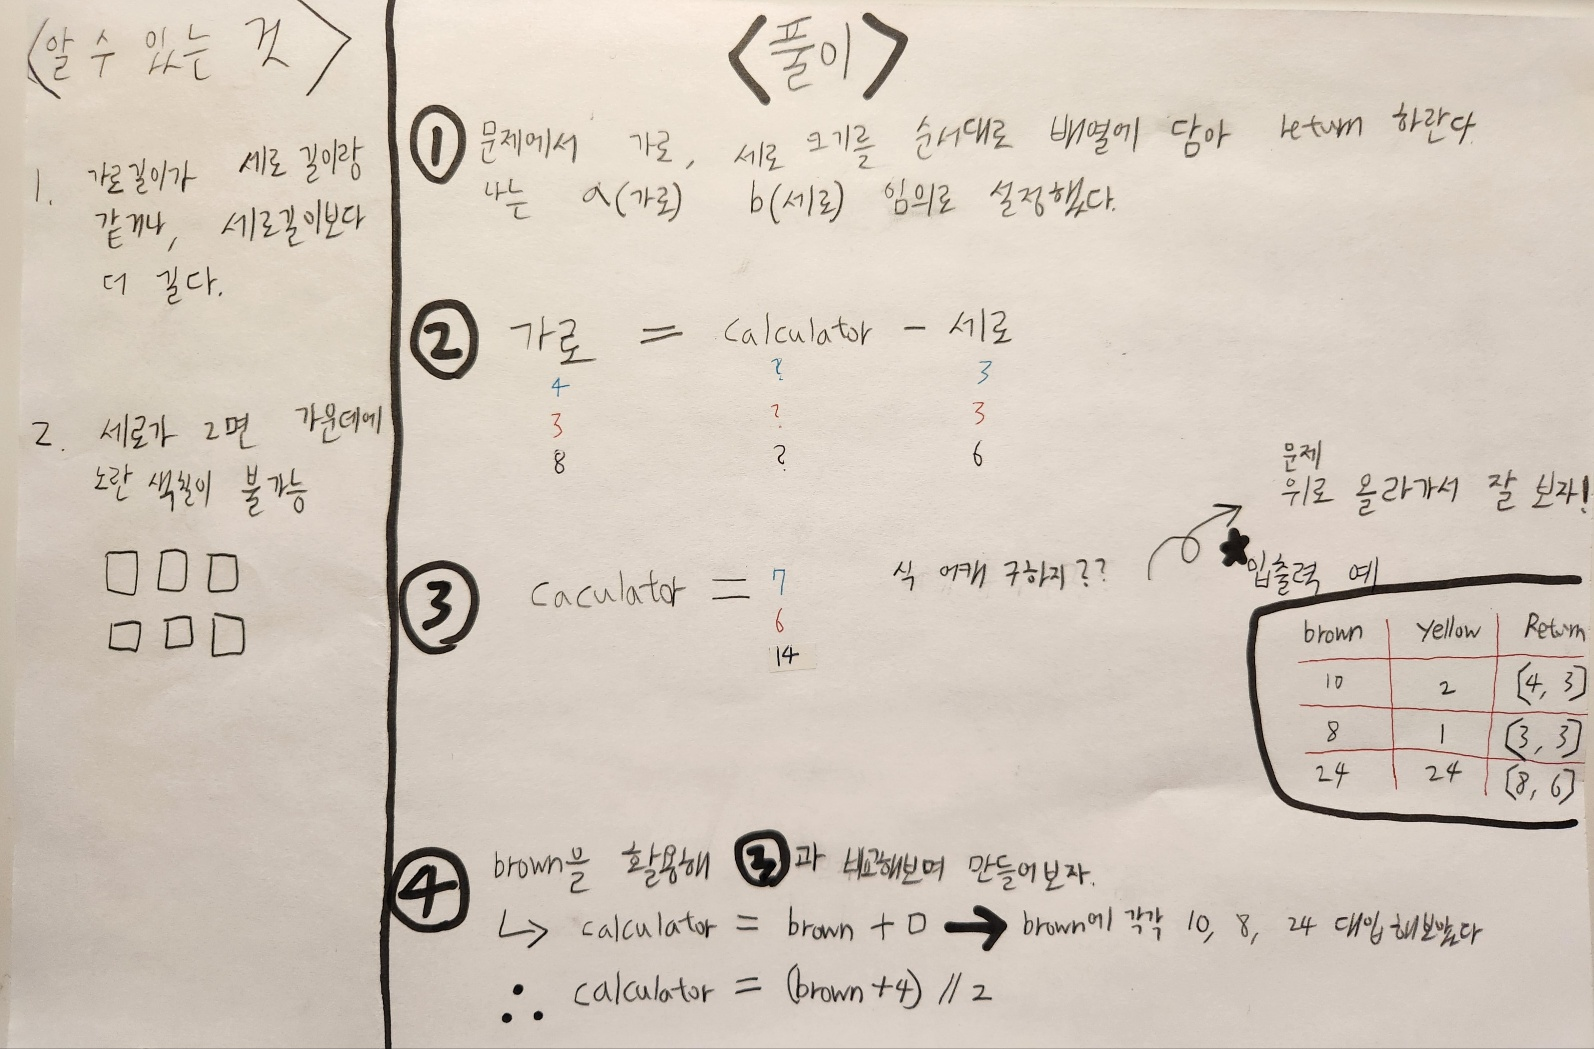 <알 수 있는 것>
1. 가로길이가 세로길이랑
같거나, 세로길이보다
더 길다.
2. 세로가 2면 가운데에
노란 색칠이 불가능
<풀이>
① 문제에서 가로, 세로 크기를 순서대로 배열에 담아 return 하란다.
나는 a(가로) b(세로) 임의로 설정했다.
② 가로 = calculator - 세로
4 ? 3
3 ? 3
8 ? 6
③ caculator = 7
6
14
식 어캐 구하지??
문제
위로 올라가서 잘 보자!
★입출력 예
brown yellow Return
10 2 [4, 3]
8 1 [3, 3]
24 24 [8, 6]
④ brown을 활용해 ③과 비교해보며 만들어보자.
↳ calculator = brown + □ → brown에 각각 10, 8, 24 대입해보았다
∴ calculator = (brown+4) // 2